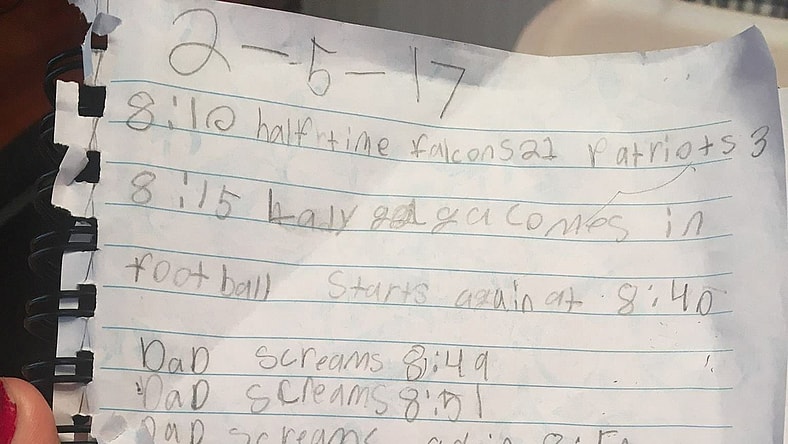 2-5-17
8:10 halftime falcons21 Patriots 3
8:15 Lady gaga comes in
football starts again at 8:40
DaD screams 8:49
DaD screams 8:51
DaD screams